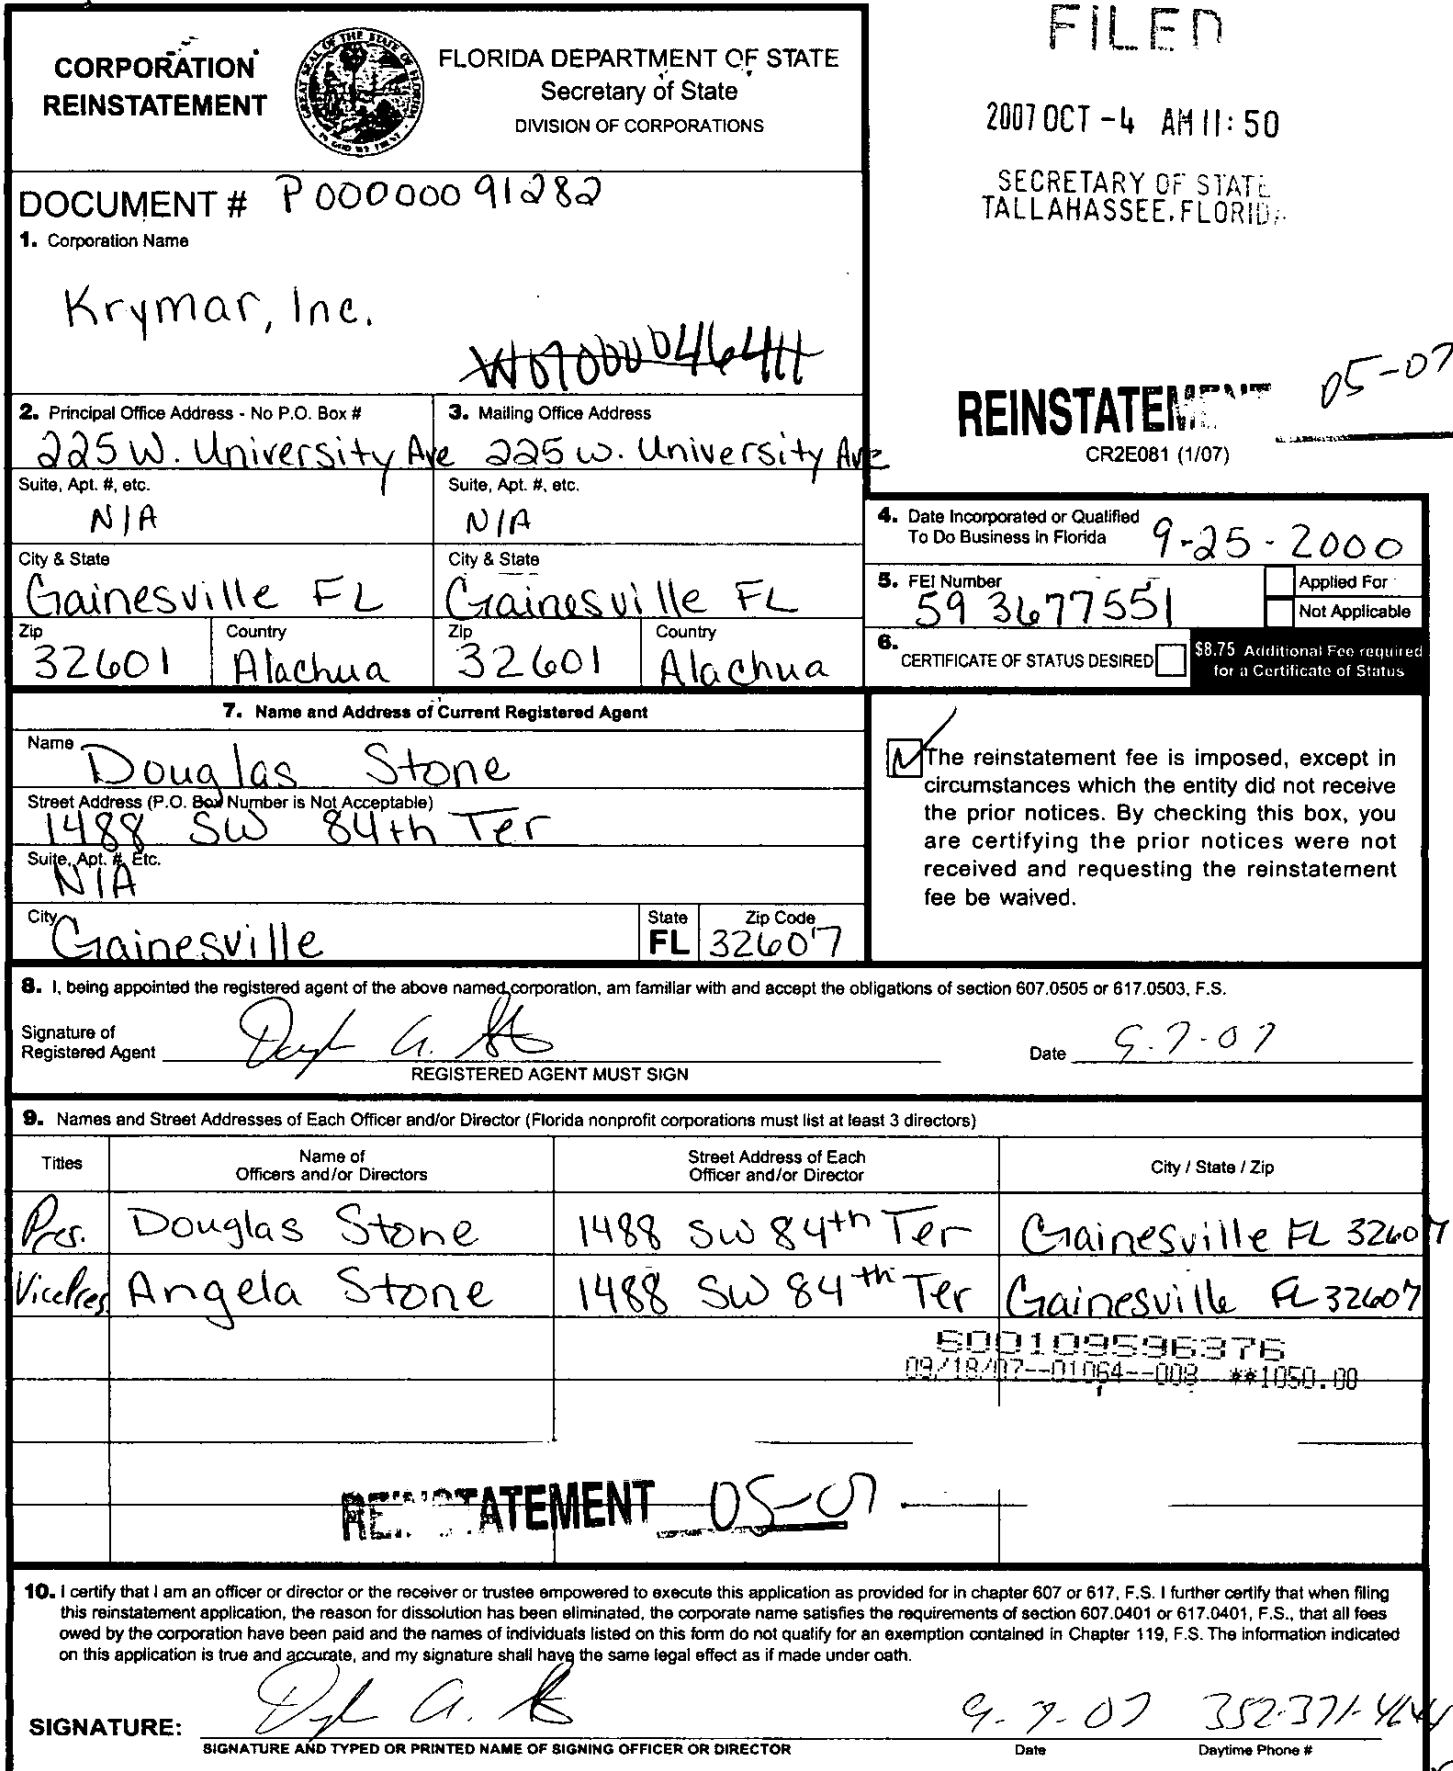 CORPORATION
REINSTATEMENT
FLORIDA DEPARTMENT OF STATE
Secretary of State
DIVISION OF CORPORATIONS
FILED
2007 OCT -4 AM 11:50
SECRETARY OF STATE
TALLAHASSEE, FLORIDA
DOCUMENT # P00000091282
1. Corporation Name
Krymar, Inc.
REINSTATEMENT 05-07
CR2E081 (1/07)
2. Principal Office Address - No P.O. Box #
225 W. University Ave
3. Mailing Office Address
225 W. University Ave
Suite, Apt. #, etc.
N/A
Suite, Apt. #, etc.
N/A
City & State
Gainesville FL
City & State
Gainesville FL
Zip
32601
Country
Alachua
Zip
32601
Country
Alachua
4. Date Incorporated or Qualified
To Do Business in Florida 9-25-2000
5. FEI Number
59 3677551
Applied For
Not Applicable
6. CERTIFICATE OF STATUS DESIRED
$8.75 Additional Fee required
for a Certificate of Status
7. Name and Address of Current Registered Agent
Name
Douglas Stone
Street Address (P.O. Box Number is Not Acceptable)
1488 SW 84th Ter
Suite, Apt. #, Etc.
N/A
City
Gainesville
State
FL
Zip Code
32607
The reinstatement fee is imposed, except in
circumstances which the entity did not receive
the prior notices. By checking this box, you
are certifying the prior notices were not
received and requesting the reinstatement
fee be waived.
8. I, being appointed the registered agent of the above named corporation, am familiar with and accept the obligations of section 607.0505 or 617.0503, F.S.
Signature of
Registered Agent
Date 9-7-07
REGISTERED AGENT MUST SIGN
9. Names and Street Addresses of Each Officer and/or Director (Florida nonprofit corporations must list at least 3 directors)
Titles
Name of
Officers and/or Directors
Street Address of Each
Officer and/or Director
City / State / Zip
Pres. Douglas Stone 1488 SW 84th Ter Gainesville FL 32607
Vice Pres Angela Stone 1488 SW 84th Ter Gainesville FL 32607
600109596376
09/18/07--01064--008 **1050.00
REINSTATEMENT 05-07
10. I certify that I am an officer or director or the receiver or trustee empowered to execute this application as provided for in chapter 607 or 617, F.S. I further certify that when filing
this reinstatement application, the reason for dissolution has been eliminated, the corporate name satisfies the requirements of section 607.0401 or 617.0401, F.S., that all fees
owed by the corporation have been paid and the names of individuals listed on this form do not qualify for an exemption contained in Chapter 119, F.S. The information indicated
on this application is true and accurate, and my signature shall have the same legal effect as if made under oath.
SIGNATURE:
9-7-07 352-371-4644
SIGNATURE AND TYPED OR PRINTED NAME OF SIGNING OFFICER OR DIRECTOR
Date
Daytime Phone #